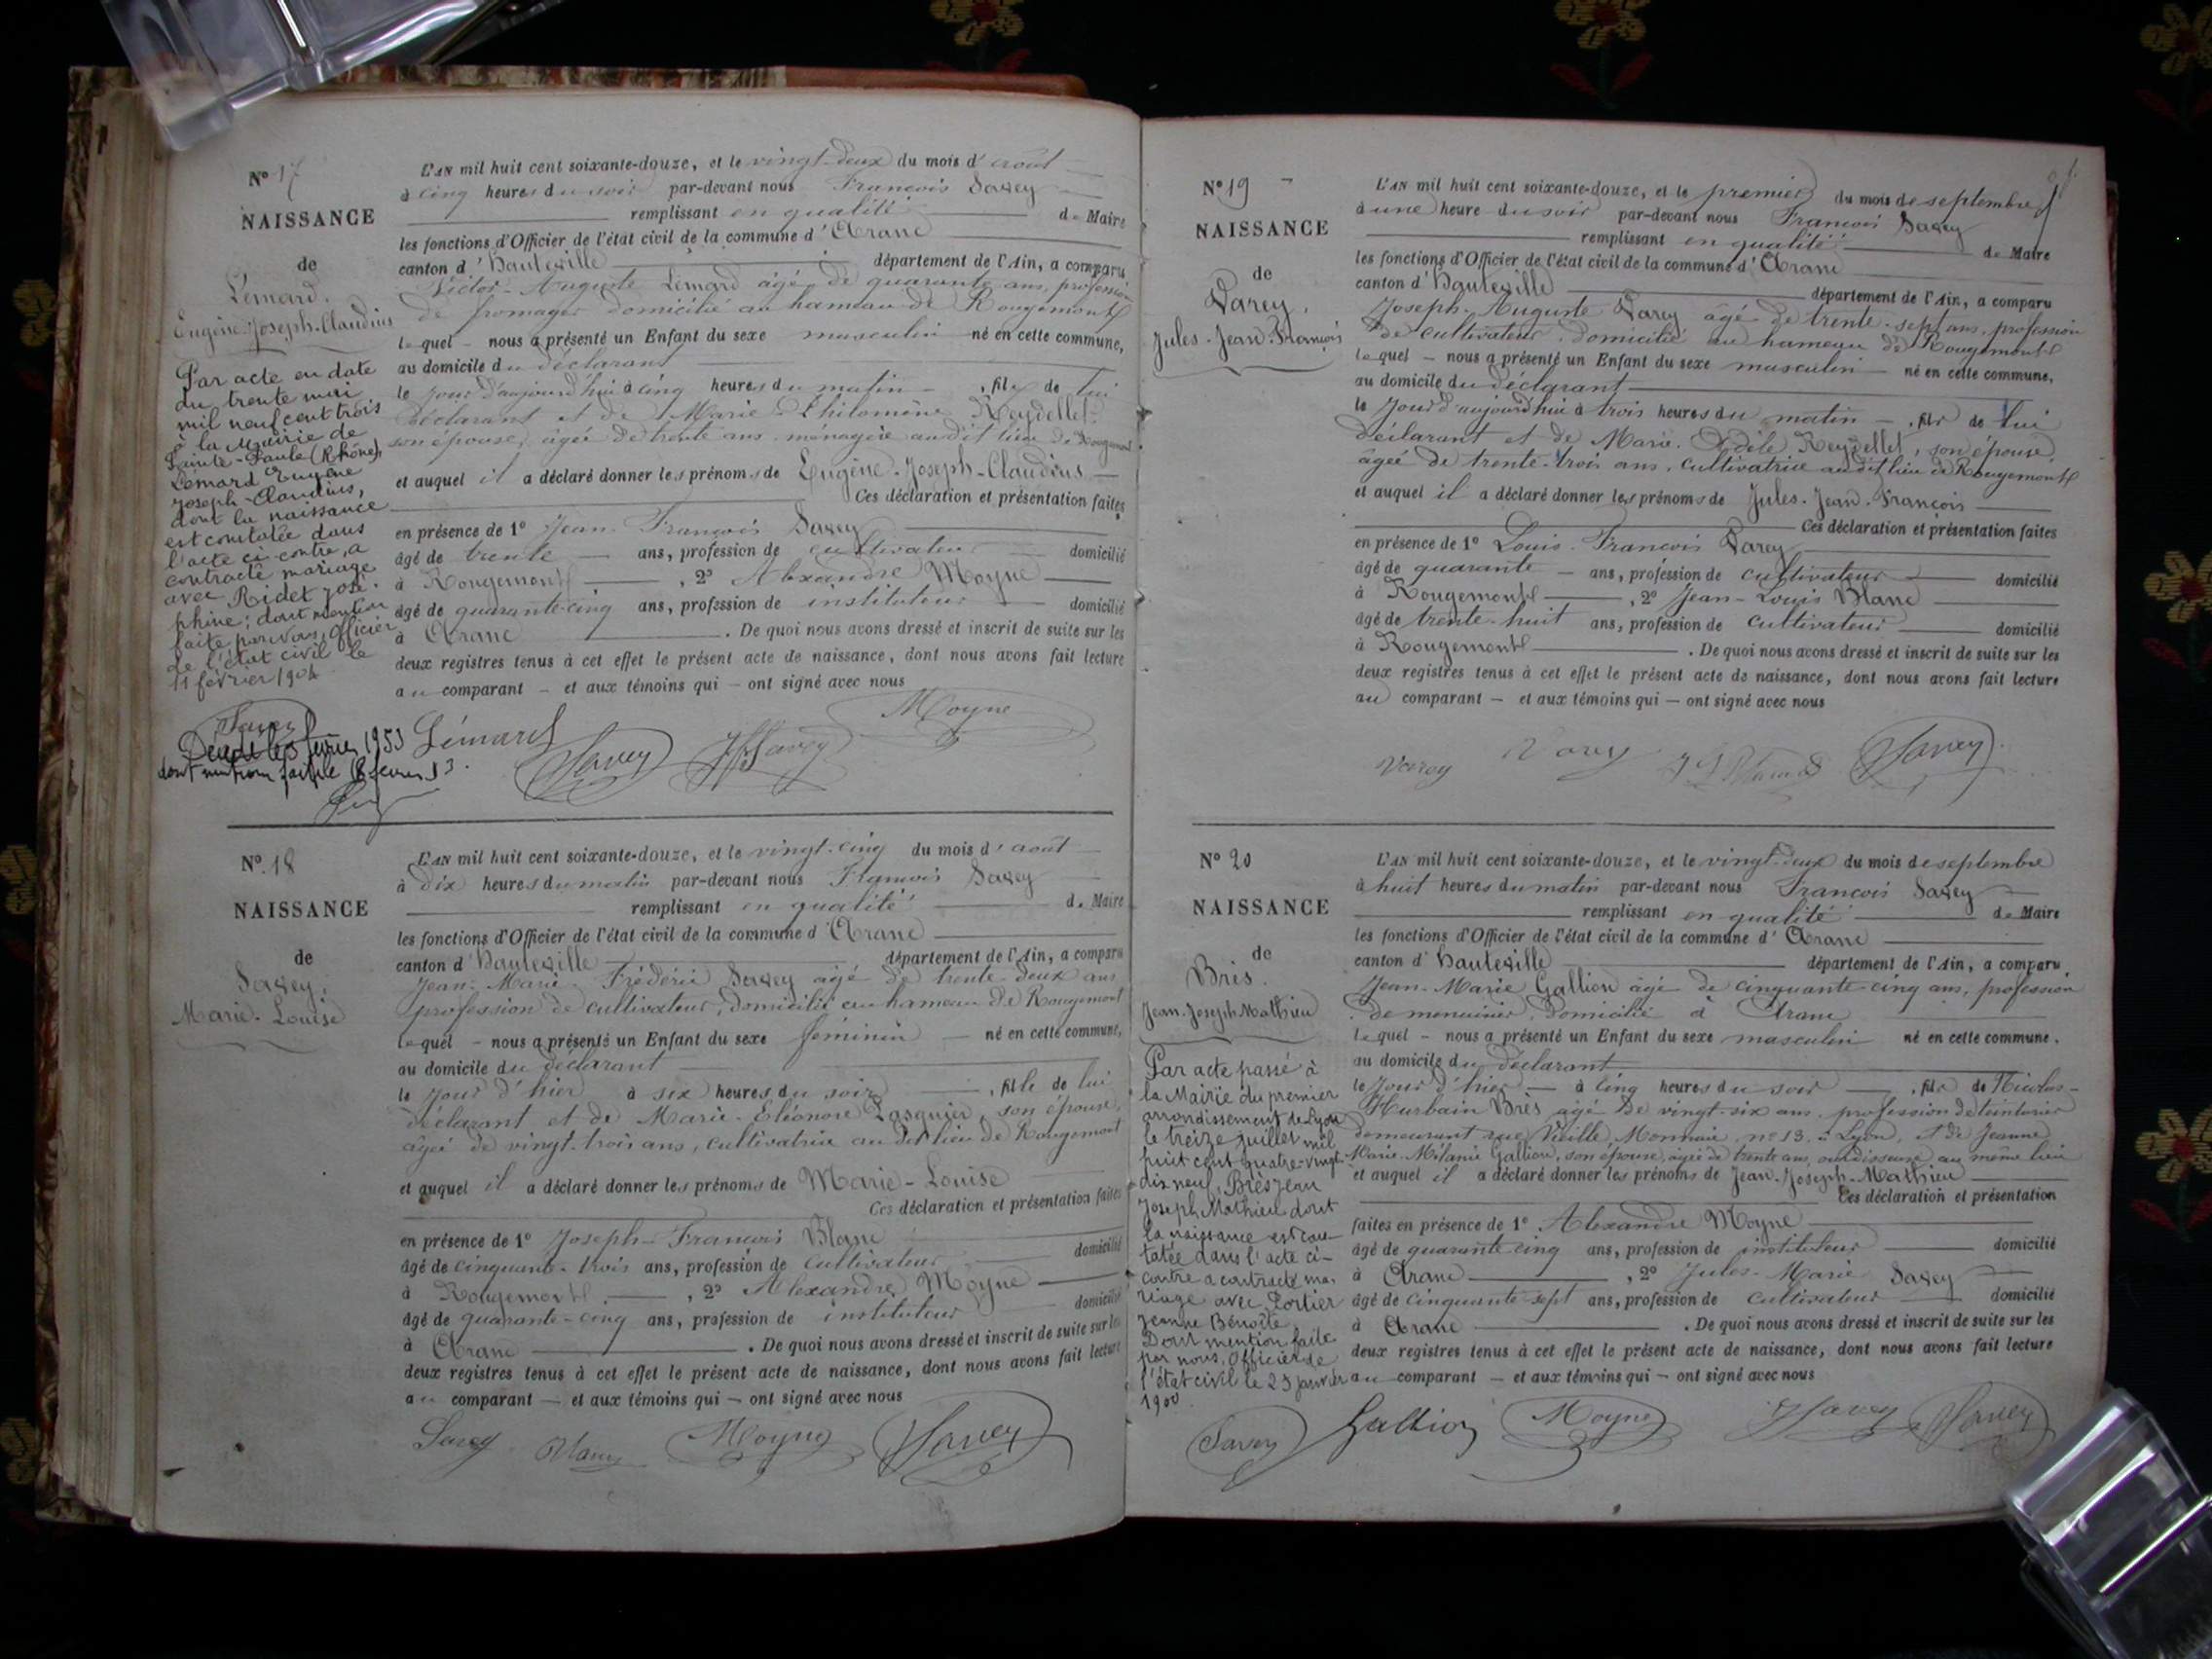 N° 17
NAISSANCE
de
Lémard.
Eugène-Joseph-Claudius
Par acte en date
du trente mai
mil neuf cent trois
à la Mairie de
Sainte-Paule (Rhône),
Lémard Eugène
Joseph-Claudius,
dont la naissance
est constatée dans
l'acte ci-contre, a
contracté mariage
avec Ridet José-
phine; dont mention
faite par nous, officier
de l'état civil le
11 février 1904
Savey
Décédé le 5 février 1953
dont mention faite le 18 février 53.
L'AN mil huit cent soixante-douze, et le vingt-deux du mois d'août
à cinq heures du soir par-devant nous François Savey
remplissant en qualité de Maire
les fonctions d'Officier de l'état civil de la commune d'Aranc
canton d'Hauteville département de l'Ain, a comparu
Victor-Auguste Lémard âgé de quarante ans, profession
de fromager domicilié au hameau de Rougemont
lequel – nous a présenté un Enfant du sexe masculin né en cette commune,
au domicile du déclarant
le jour d'aujourd'hui à cinq heures du matin – , fils de lui
déclarant et de Marie-Philomène Reydellet
son épouse, âgée de trente ans, ménagère audit lieu de Rougemont
et auquel il a déclaré donner les prénoms de Eugène-Joseph-Claudius
Ces déclaration et présentation faites
en présence de 1° Jean-François Savey
âgé de trente – ans, profession de cultivateur domicilié
à Rougemont , 2° Alexandre Moyne
âgé de quarante-cinq ans, profession de instituteur domicilié
à Aranc . De quoi nous avons dressé et inscrit de suite sur les
deux registres tenus à cet effet le présent acte de naissance, dont nous avons fait lecture
au comparant – et aux témoins qui – ont signé avec nous
Lémard Savey JF Savey Moyne
N° 18
NAISSANCE
de
Savey,
Marie-Louise
L'AN mil huit cent soixante-douze, et le vingt-cinq du mois d'août
à dix heures du matin par-devant nous François Savey
remplissant en qualité de Maire
les fonctions d'Officier de l'état civil de la commune d'Aranc
canton d'Hauteville département de l'Ain, a comparu
Jean-Marie Frédéric Savey âgé de trente-deux ans
profession de cultivateur, domicilié au hameau de Rougemont
lequel – nous a présenté un Enfant du sexe féminin – né en cette commune,
au domicile du déclarant
le jour d'hier à six heures du soir , fille de lui
déclarant et de Marie-Eléonore Pasquier, son épouse,
âgée de vingt-trois ans, cultivatrice au dit lieu de Rougemont
et auquel il a déclaré donner les prénoms de Marie-Louise
Ces déclaration et présentation faites
en présence de 1° Joseph-François Blanc
âgé de cinquante-trois ans, profession de cultivateur domicilié
à Rougemont , 2° Alexandre Moyne
âgé de quarante-cinq ans, profession de instituteur domicilié
à Aranc . De quoi nous avons dressé et inscrit de suite sur les
deux registres tenus à cet effet le présent acte de naissance, dont nous avons fait lecture
au comparant – et aux témoins qui – ont signé avec nous
Savey Blanc Moyne Savey
N° 19
NAISSANCE
de
Varey,
Jules-Jean-François
L'AN mil huit cent soixante-douze, et le premier du mois de septembre
à une heure du soir par-devant nous François Savey
remplissant en qualité de Maire
les fonctions d'Officier de l'état civil de la commune d'Aranc
canton d'Hauteville département de l'Ain, a comparu
Joseph-Auguste Varey âgé de trente-sept ans, profession
de cultivateur, domicilié au hameau de Rougemont
lequel – nous a présenté un Enfant du sexe masculin né en cette commune,
au domicile du déclarant
le jour d'aujourd'hui à trois heures du matin – , fils de lui
déclarant et de Marie-Adèle Reydellet, son épouse
âgée de trente-trois ans, cultivatrice audit lieu de Rougemont
et auquel il a déclaré donner les prénoms de Jules-Jean-François
Ces déclaration et présentation faites
en présence de 1° Louis-François Varey
âgé de quarante – ans, profession de cultivateur domicilié
à Rougemont , 2° Jean-Louis Blanc
âgé de trente-huit ans, profession de cultivateur domicilié
à Rougemont . De quoi nous avons dressé et inscrit de suite sur les
deux registres tenus à cet effet le présent acte de naissance, dont nous avons fait lecture
au comparant – et aux témoins qui – ont signé avec nous
Varey Varey J L Blanc Savey
N° 20
NAISSANCE
de
Brès.
Jean-Joseph-Mathieu
Par acte passé à
la Mairie du premier
arrondissement de Lyon
le treize juillet mil
huit cent quatre-vingt
dix neuf, Brès Jean
Joseph Mathieu dont
la naissance est cons-
tatée dans l'acte ci-
contre a contracté ma-
riage avec Portier
Jeanne Bénoite.
Dont mention faite
par nous, officier de
l'état civil le 25 janvier
1900
Savey
L'AN mil huit cent soixante-douze, et le vingt-deux du mois de septembre
à huit heures du matin par-devant nous François Savey
remplissant en qualité de Maire
les fonctions d'Officier de l'état civil de la commune d'Aranc
canton d'Hauteville département de l'Ain, a comparu
Jean-Marie Gallion âgé de cinquante-cinq ans, profession
de menuisier, domicilié à Aranc
lequel – nous a présenté un Enfant du sexe masculin né en cette commune.
au domicile du déclarant
le jour d'hier – à cinq heures du soir , fils de Nicolas-
Hurbain Brès âgé de vingt-six ans, profession de teinturier
demeurant rue Vieille Monnaie, n° 13, à Lyon, et de Jeanne
Marie-Mélanie Gallion, son épouse, âgée de trente ans, ourdisseuse au même lieu
et auquel il a déclaré donner les prénoms de Jean-Joseph-Mathieu
Ces déclaration et présentation
faites en présence de 1° Alexandre Moyne
âgé de quarante-cinq ans, profession de instituteur domicilié
à Aranc , 2° Jules-Marie Savey
âgé de cinquante-sept ans, profession de cultivateur domicilié
à Aranc . De quoi nous avons dressé et inscrit de suite sur les
deux registres tenus à cet effet le présent acte de naissance, dont nous avons fait lecture
au comparant – et aux témoins qui – ont signé avec nous
Gallion Moyne Savey Savey